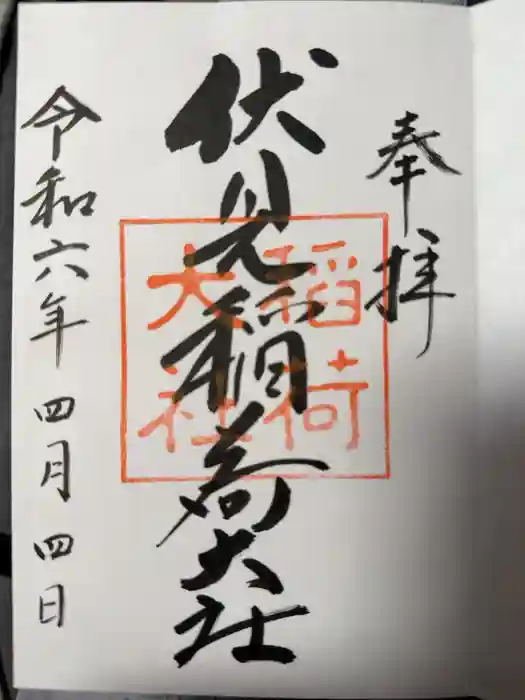 奉拝
伏見稲荷大社
稲荷
大社
令和六年四月四日